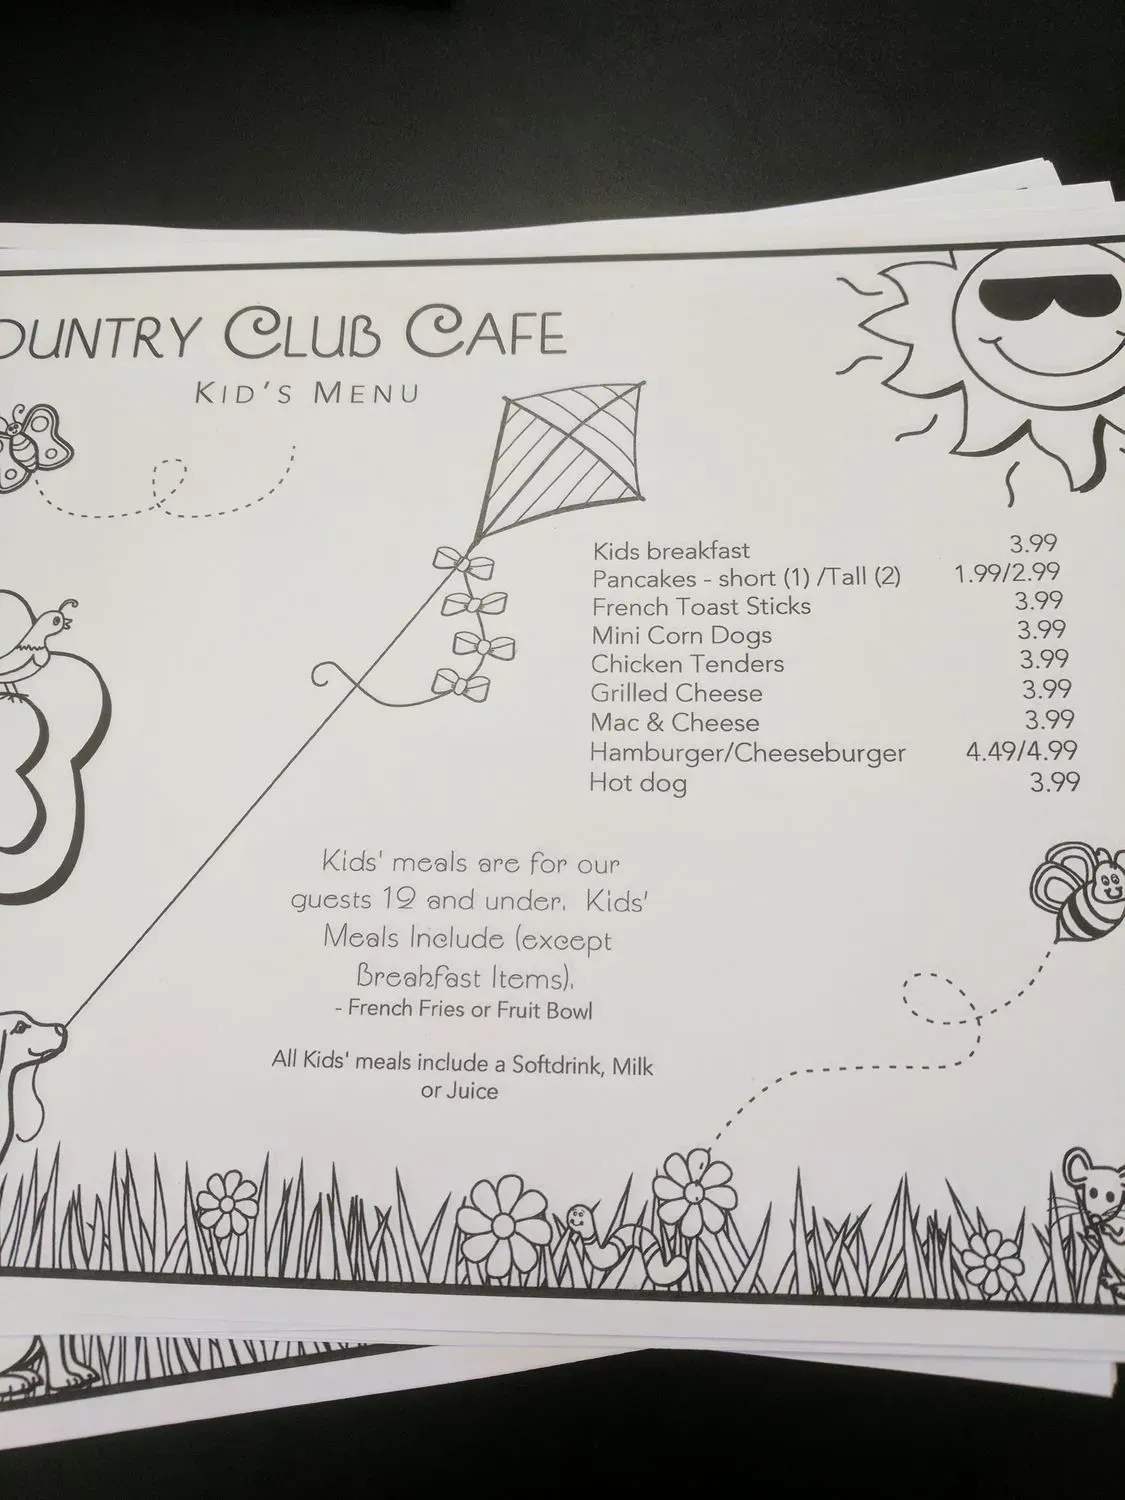 OUNTRY CLUB CAFE
KID'S MENU
Kids breakfast 3.99
Pancakes - short (1) /Tall (2) 1.99/2.99
French Toast Sticks 3.99
Mini Corn Dogs 3.99
Chicken Tenders 3.99
Grilled Cheese 3.99
Mac & Cheese 3.99
Hamburger/Cheeseburger 4.49/4.99
Hot dog 3.99
Kids' meals are for our
guests 12 and under. Kids'
Meals Include (except
Breakfast Items).
- French Fries or Fruit Bowl
All Kids' meals include a Softdrink, Milk
or Juice